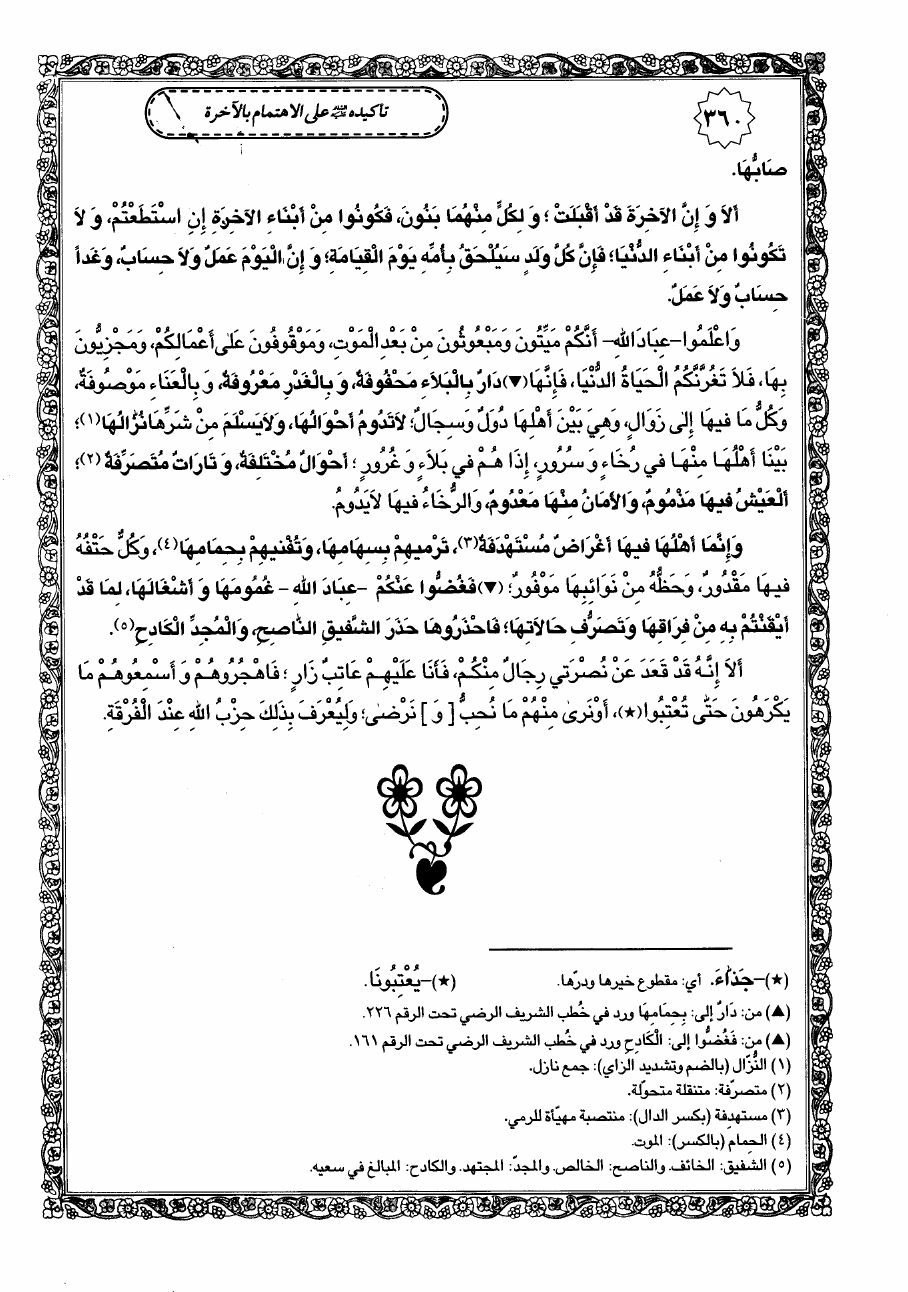 ٣٦٠
تأكيده على الاهتمام بالآخرة
صَابُّهَا.
أَلاَ وَ إِنَّ الآخِرَةَ قَدْ أَقْبَلَتْ ؛ وَ لِكُلٍّ مِنْهُمَا بَنُونَ، فَكُونُوا مِنْ أَبْنَاءِ الآخِرَةِ إِنِ اسْتَطَعْتُمْ، وَ لاَ
تَكُونُوا مِنْ أَبْنَاءِ الدُّنْيَا؛ فَإِنَّ كُلَّ وَلَدٍ سَيُلْحَقُ بِأُمِّهِ يَوْمَ الْقِيَامَةِ؛ وَ إِنَّ الْيَوْمَ عَمَلٌ وَلاَ حِسَابٌ، وَغَداً
حِسَابٌ وَلاَ عَمَلٌ.
وَاعْلَمُوا -عِبَادَ اللهِ- أَنَّكُمْ مَيِّتُونَ وَمَبْعُوثُونَ مِنْ بَعْدِ الْمَوْتِ، وَمَوْقُوفُونَ عَلىٰ أَعْمَالِكُمْ، وَمَجْزِيُّونَ
بِهَا، فَلاَ تَغُرَّنَّكُمُ الْحَيَاةُ الدُّنْيَا، فَإِنَّهَا (▼) دَارٌ بِالْبَلاَءِ مَحْفُوفَةٌ، وَ بِالْغَدْرِ مَعْرُوفَةٌ، وَ بِالْعَنَاءِ مَوْصُوفَةٌ،
وَكُلُّ مَا فِيهَا إِلىٰ زَوَالٍ، وَهِيَ بَيْنَ أَهْلِهَا دُوَلٌ وَسِجَالٌ؛ لاَتَدُومُ أَحْوَالُهَا، وَلاَيَسْلَمُ مِنْ شَرِّهَا نُزَّالُهَا (١)؛
بَيْنَا أَهْلُهَا مِنْهَا في رَخَاءٍ وَ سُرُورٍ، إِذَا هُمْ في بَلاَءٍ وَ غُرُورٍ ؛ أَحْوَالٌ مُخْتَلِفَةٌ، وَ تَارَاتٌ مُتَصَرِّفَةٌ (٢)؛
أَلْعَيْشُ فِيهَا مَذْمُومٌ، وَالأَمَانُ مِنْهَا مَعْدُومٌ، وَالرَّخَاءُ فِيهَا لاَيَدُومُ.
وَإِنَّمَا أَهْلُهَا فِيهَا أَغْرَاضٌ مُسْتَهْدَفَةٌ (٣)، تَرْمِيهِمْ بِسِهَامِهَا، وَتُفْنِيهِمْ بِحِمَامِهَا (٤)، وَكُلٌّ حَتْفُهُ
فِيهَا مَقْدُورٌ، وَحَظُّهُ مِنْ نَوَائِبِهَا مَوْفُورٌ؛ (▼) فَغُضُّوا عَنْكُمْ -عِبَادَ اللهِ - غُمُومَهَا وَ أَشْغَالَهَا، لِمَا قَدْ
أَيْقَنْتُمْ بِهِ مِنْ فِرَاقِهَا وَتَصَرُّفِ حَالاَتِهَا؛ فَاحْذَرُوهَا حَذَرَ الشَّفِيقِ النَّاصِحِ، وَالْمُجِدِّ الْكَادِحِ (٥).
أَلاَ إِنَّهُ قَدْ قَعَدَ عَنْ نُصْرَتي رِجَالٌ مِنْكُمْ، فَأَنَا عَلَيْهِمْ عَاتِبٌ زَارٍ ؛ فَاهْجُرُوهُمْ وَ أَسْمِعُوهُمْ مَا
يَكْرَهُونَ حَتّٰى تُعْتِبُوا (★)، أَوْنَرىٰ مِنْهُمْ مَا نُحِبُّ [ وَ ] نَرْضىٰ؛ وَلِيُعْرَفَ بِذَلِكَ حِزْبُ اللهِ عِنْدَ الْفُرْقَةِ.
(★)-جَذَّاءَ. أي: مقطوع خيرها ودرّها. (★)-يُعْتِبُونَا.
(▲) من: دَارٌ إلى: بِحِمَامِهَا ورد في خُطب الشريف الرضي تحت الرقم ٢٢٦.
(▲) من: فَغُضُّوا إلى: الْكَادِحِ ورد في خُطب الشريف الرضي تحت الرقم ١٦١.
(١) النُّزّال (بالضم وتشديد الزاي): جمع نازل.
(٢) متصرّفة: متنقلة متحوّلة.
(٣) مستهدِفة (بكسر الدال): منتصبة مهيّأة للرمي.
(٤) الحِمام (بالكسر): الموت.
(٥) الشفيق: الخائف. والناصح: الخالص. والمجدّ: المجتهد. والكادح: المبالغ في سعيه.